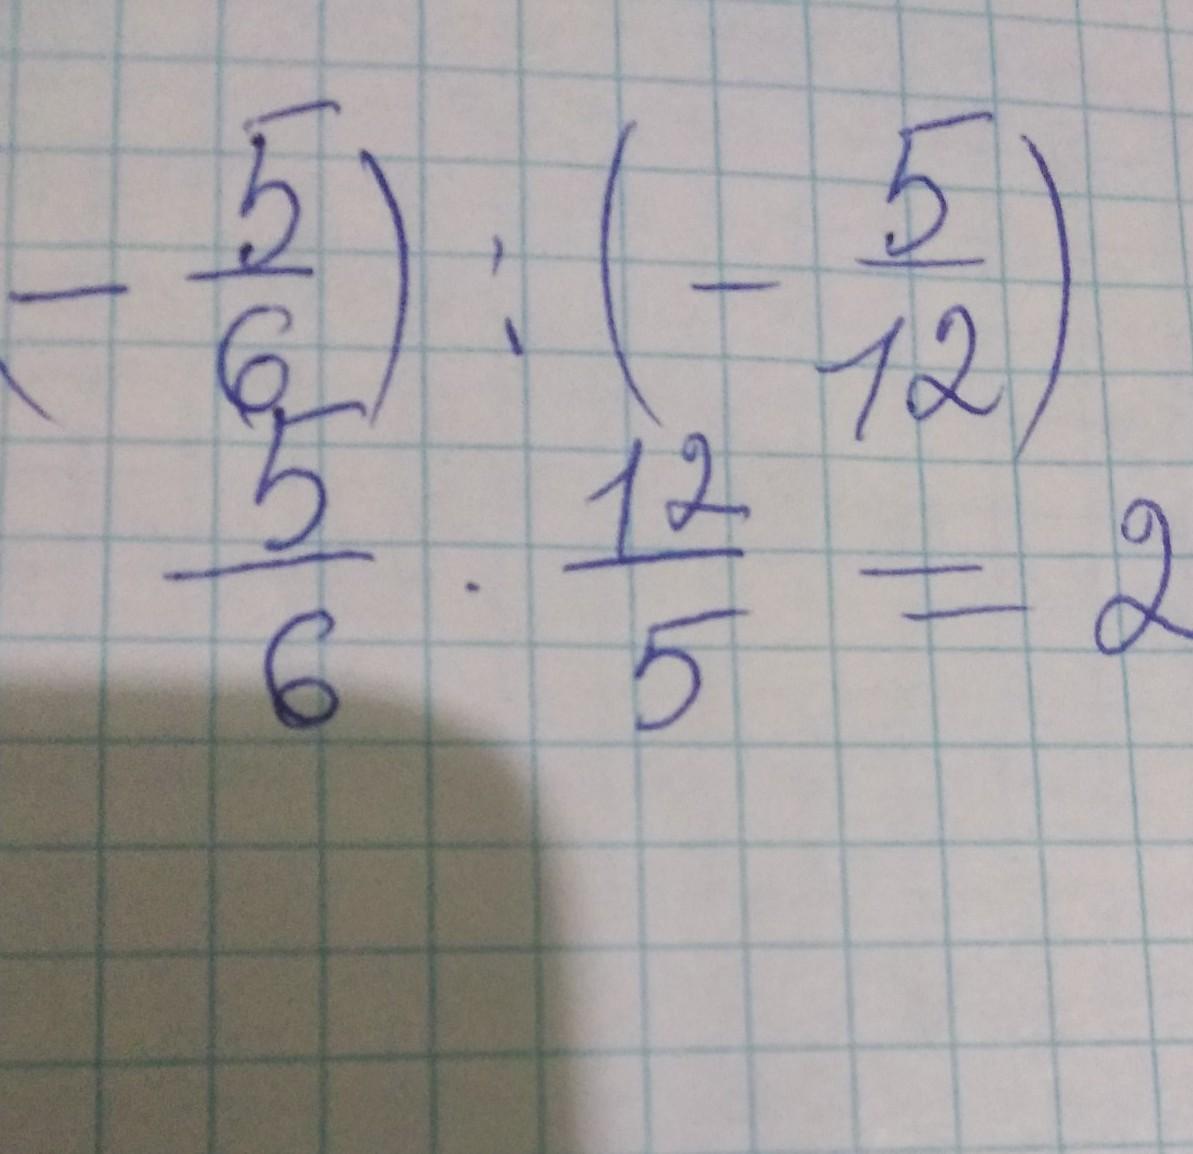 (-5/6) : (-5/12)
5/6 · 12/5 = 2